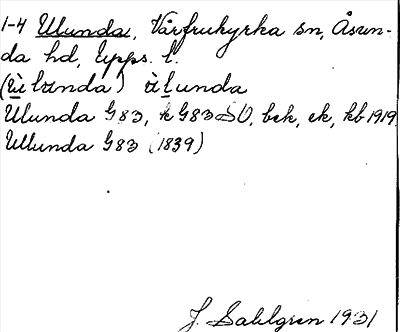 1-4 Ulunda, Vårfrukyrka sn, Åsun-
da hd, Upps. l.
(ùlunda) ùlunda
Ulunda G83, k G83 SO, bek, ek, kb 1919
Ullunda G83 (1839)
J. Sahlgren 1931